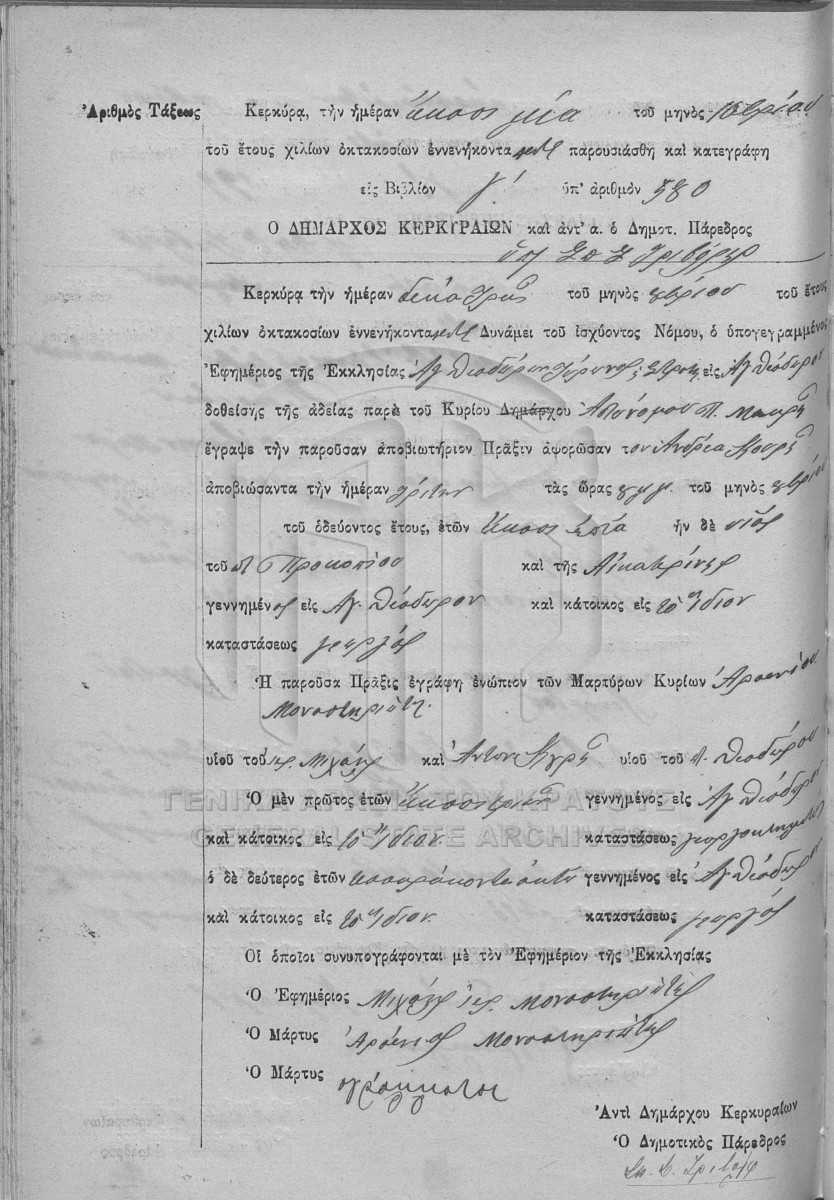 Ἀριθμὸς Τάξεως
Κερκύρᾳ, τὴν ἡμέραν εἴκοσι μία τοῦ μηνὸς 10βρίου
τοῦ ἔτους χιλίων ὀκτακοσίων ἐννενήκοντα παρουσιάσθη καὶ κατεγράφη
εἰς Βιβλίον γ! ὑπ' ἀριθμὸν 580
Ο ΔΗΜΑΡΧΟΣ ΚΕΡΚΥΡΑΙΩΝ καὶ ἀντ' α. ὁ Δημοτ. Πάρεδρος
Κερκύρᾳ τὴν ἡμέραν δεκάτρεις τοῦ μηνὸς 9βρίου τοῦ ἔτους
χιλίων ὀκτακοσίων ἐννενήκοντα Δυνάμει τοῦ ἰσχύοντος Νόμου, ὁ ὑπογεγραμμένος
Ἐφημέριος τῆς Ἐκκλησίας Ἁγ. Θεοδώρου εἰς Ἁγ. Θεόδωρον
δοθείσης τῆς ἀδείας παρὰ τοῦ Κυρίου Δημάρχου Ἀστυνόμου Π. Μακρῆ
ἔγραψε τὴν παροῦσαν ἀποβιωτήριον Πρᾶξιν ἀφορῶσαν τον Ἀνδρέα
ἀποβιώσαντα τὴν ἡμέραν τρίτην τὰς ὥρας τοῦ μηνὸς 9βρίου
τοῦ ὁδεύοντος ἔτους, ἐτῶν εἴκοσι ἑπτά ἦν δὲ υἱὸς
τοῦ Προκοπίου καὶ τῆς Αἰκατερίνης
γεννημένος εἰς Ἁγ. Θεόδωρον καὶ κάτοικος εἰς τὸ ἴδιον
καταστάσεως γεωργός
Ἡ παροῦσα Πρᾶξις ἐγράφη ἐνώπιον τῶν Μαρτύρων Κυρίων Ἀρσενίου
Μοναστηριώτη
υἱοῦ τοῦ ἱερ. Μιχαήλ καὶ Ἀντώνη υἱοῦ τοῦ π. Θεοδώρου
Ὁ μὲν πρῶτος ἐτῶν εἴκοσι τριῶν γεννημένος εἰς Ἁγ. Θεόδωρον
καὶ κάτοικος εἰς τὸ ἴδιον καταστάσεως γεωργοκτηματίας
ὁ δὲ δεύτερος ἐτῶν τεσσαράκοντα ὀκτώ γεννημένος εἰς Ἁγ. Θεόδωρον
καὶ κάτοικος εἰς τὸ ἴδιον καταστάσεως γεωργός
Οἱ ὁποῖοι συνυπογράφονται μὲ τὸν Ἐφημέριον τῆς Ἐκκλησίας
Ὁ Ἐφημέριος Μιχαήλ ἱερ. Μοναστηριώτης
Ὁ Μάρτυς Ἀρσένιος Μοναστηριώτης
Ὁ Μάρτυς ἀγράμματος
Ἀντὶ Δημάρχου Κερκυραίων
Ὁ Δημοτικὸς Πάρεδρος
ΓΕΝΙΚΑ ΑΡΧΕΙΑ ΤΟΥ ΚΡΑΤΟΥΣ
GENERAL STATE ARCHIVES